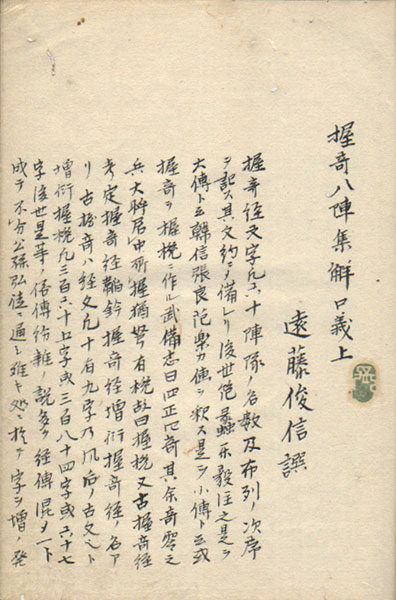 握奇八陣集解口義上
遠藤俊信譔
握奇経文字凡六十陣隊ノ名数及布列ノ次序
ヲ記ス其文約ニメ備レリ後世范蠡楽毅注之是ヲ
大傳ト云韓信張良 是ヲ小傳ト云或
握奇ヲ握機ニ作ル武備志曰四正四奇其余奇零之
兵大将居中所握猶弩ノ有機故曰握機又古握奇経
考定握奇経 握奇経増衍握奇経ノ名ア
リ古握奇ハ経文凡十有九字乃風后ノ古文也ト
増衍握機凡三百六十上字或三百八十四字或六十七
字後世是等ノ俗傳紛雑ノ説多ク経傳混メ一ト
成テ不分公孫弘 通シ難キ処ニ於テ字ヲ増ノ発